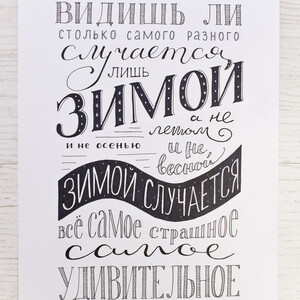 ВИДИШЬ ЛИ
СТОЛЬКО САМОГО РАЗНОГО
случается
ЛИШЬ
ЗИМОЙ
а не
летом
И НЕ ОСЕНЬЮ
и не
весной
ЗИМОЙ СЛУЧАЕТСЯ
ВСЁ САМОЕ СТРАШНОЕ
самое
УДИВИТЕЛЬНОЕ